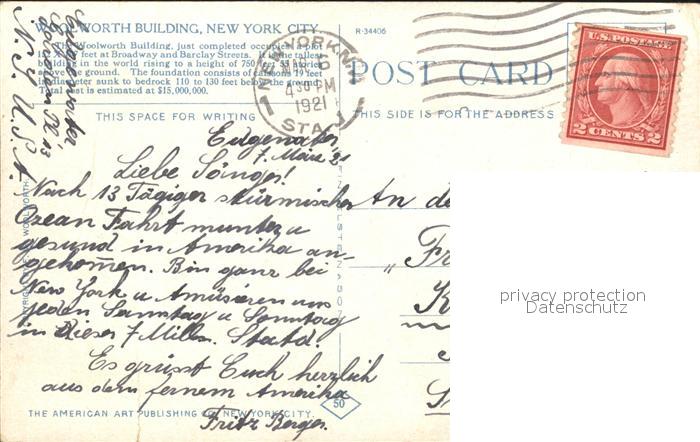 WOOLWORTH BUILDING, NEW YORK CITY.
The Woolworth Building, just completed occupies a plot
feet at Broadway and Barclay Streets. It is the tallest
building in the world rising to a height of 750 feet 55 stories
above the ground. The foundation consists of caissons 19 feet
in diameter sunk to bedrock 110 to 130 feet below the ground.
Total cost is estimated at $15,000,000.
R-34406
POST CARD
NEW YORK, N.Y.
MAR 6
4 30 PM
1921
STA. J
U.S. POSTAGE
2 CENTS 2
THIS SPACE FOR WRITING
THIS SIDE IS FOR THE ADDRESS
Edgewater
7. März 21
Liebe Sänger!
Nach 13 Tägiger stürmischer
Ozean Fahrt munter u
gesund in Amerika an-
gekommen. Bin ganz bei
New York u Amüsieren uns
jeden Samstag u Sonntag
in dieser 7 Mill. Stadt.
Es grüsst Euch herzlich
aus dem fernem Amerika
Fritz Berger
Edgewater,
N. Y. U. S. A.
An d
„Fr
THE AMERICAN ART PUBLISHING CO. NEW YORK CITY.
50
privacy protection
Datenschutz